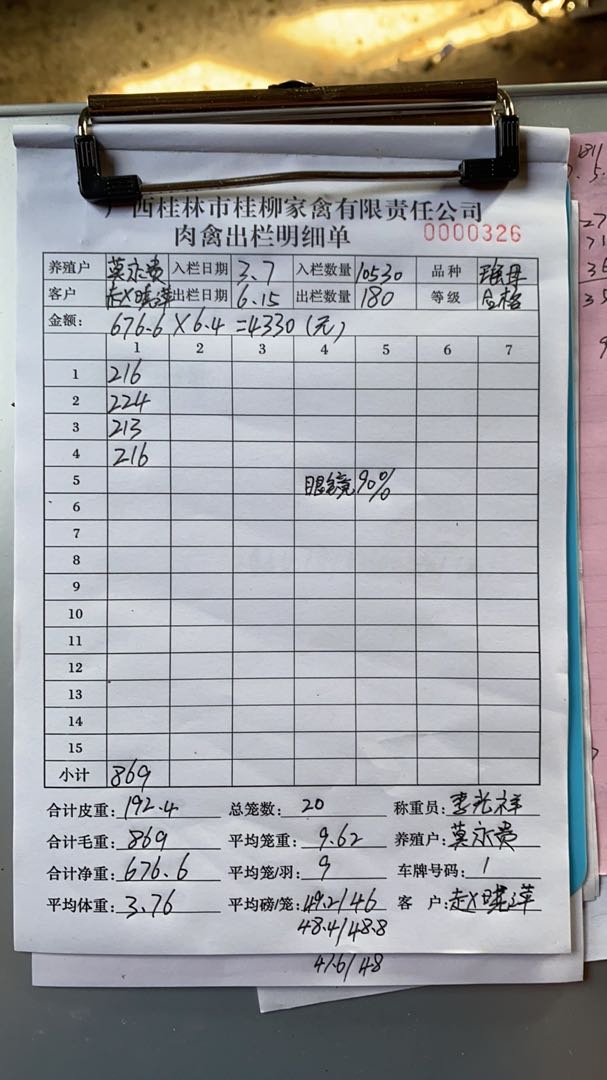 广西桂林市桂柳家禽有限责任公司
肉禽出栏明细单 0000326
养殖户 莫永贵 入栏日期 3.7 入栏数量 10530 品种
客户 赵X晓萍 出栏日期 6.15 出栏数量 180 等级 合格
金额: 676.6 X 6.4 =4330 (元)
1 2 3 4 5 6 7
1 216
2 224
3 213
4 216
5 眼镜 90%
6
7
8
9
10
11
12
13
14
15
小计 869
合计皮重: 192.4 总笼数: 20 称重员: 李光祥
合计毛重: 869 平均笼重: 9.62 养殖户: 莫永贵
合计净重: 676.6 平均笼/羽: 9 车牌号码: 1
平均体重: 3.76 平均磅/笼: 49.2/46 客 户: 赵X晓萍
48.4/48.8
47.6/48